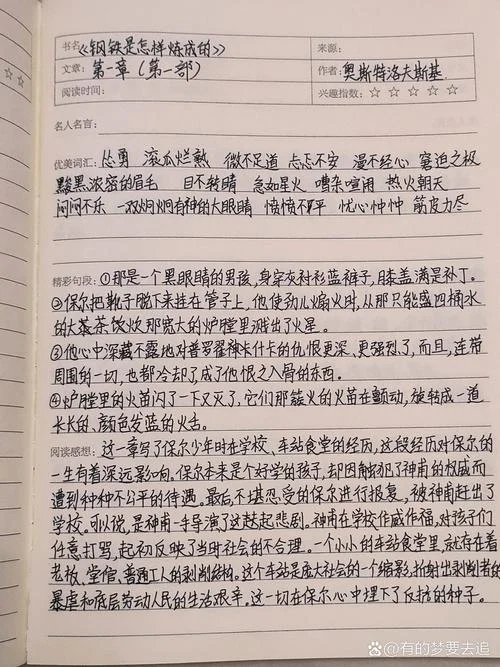 书名 《钢铁是怎样炼成的》 来源:
文章: 第一章(第一部) 作者: 奥斯特洛夫斯基
阅读时间: 兴趣指数: ☆ ☆ ☆ ☆ ☆
名人名言:
优美词汇: 怂勇 滚瓜烂熟 微不足道 忐忑不安 漫不经心 窘迫之极
黢黑浓密的眉毛 目不转睛 急如星火 嘈杂喧闹 热火朝天
闷闷不乐 一双炯炯有神的大眼睛 愤愤不平 忧心忡忡 筋皮力尽
精彩句段: ①那是一个黑眼睛的男孩,身穿灰衬衫蓝裤子,膝盖满是补丁。
②保尔把靴子脱下来挂在管子上,他使劲儿煽火时,从那只能盛四桶水
的大茶茶饮炊那宽大的炉膛里溅出了火星。
③他心中深藏不露地对普罗霍神卡什卡的仇恨更深、更强烈了,而且,连带
周围的一切,也都冷却了,成了他恨之入骨的东西。
④炉膛里的火苗闪了一下又灭了,它们那簇火的火苗在颤动,旋转成一道
长长的、颜色发蓝的火舌。
阅读感想: 这一章写了保尔少年时在学校、车站食堂的经历,这段经历对保尔的
一生有着深远影响。保尔本来是个好学的孩子,却因触犯了神甫的权威而
遭到种种不公平的待遇。最后,不堪忍受的保尔进行报复,被神甫赶出了
学校。可以说,是神甫一手导演了这起悲剧。神甫在学校作威作福,对孩子们
任意打骂,起初反映了当时社会的不合理。一个小小的车站食堂里,就存在着
老板、堂倌、普通工人的剥削结构。这个车站是庞大社会的一个缩影,折射出剥削者的
暴虐和底层劳动人民的生活艰辛。这一切在保尔心中埋下了反抗的种子。
@有的梦要去追